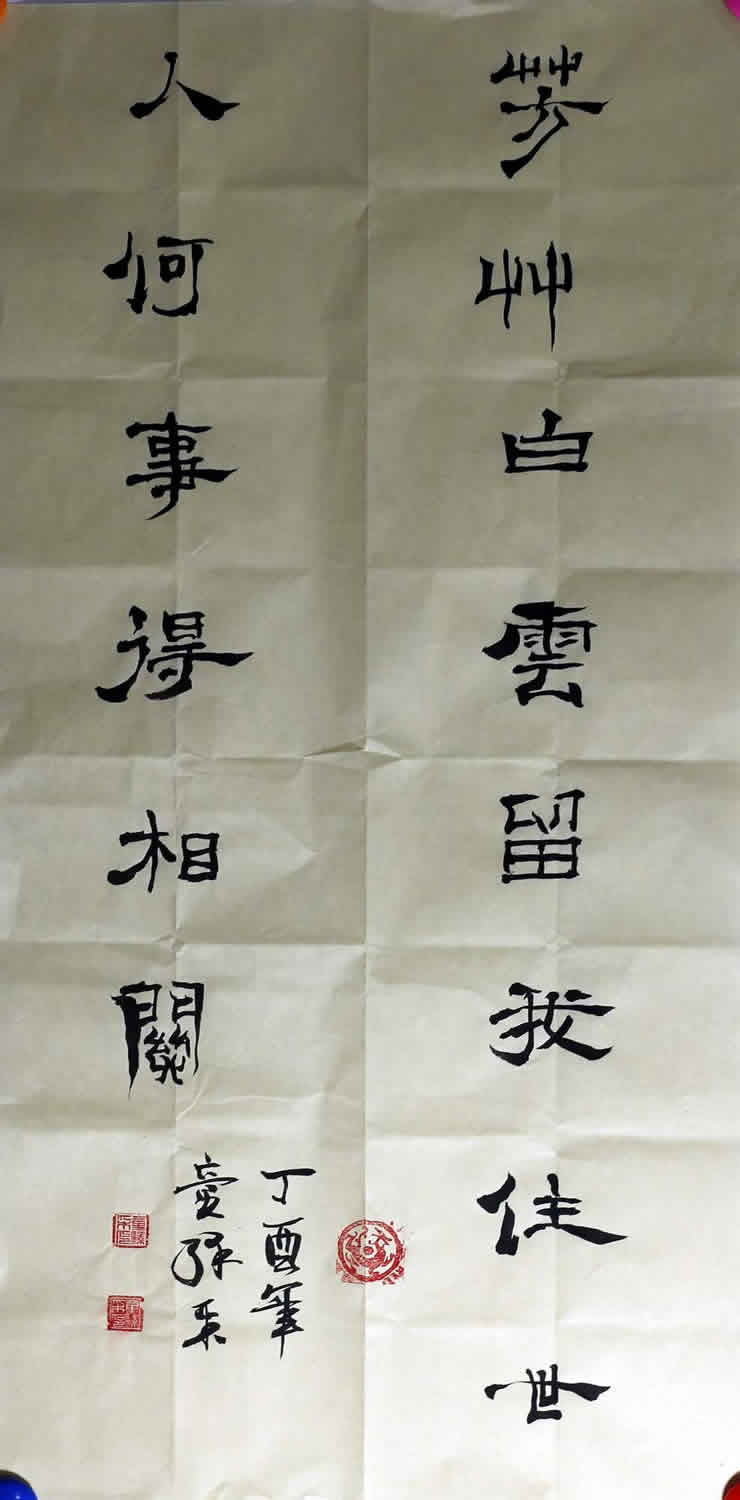 芳艸白雲留我住世
人何事得相關
丁酉年
童孫来